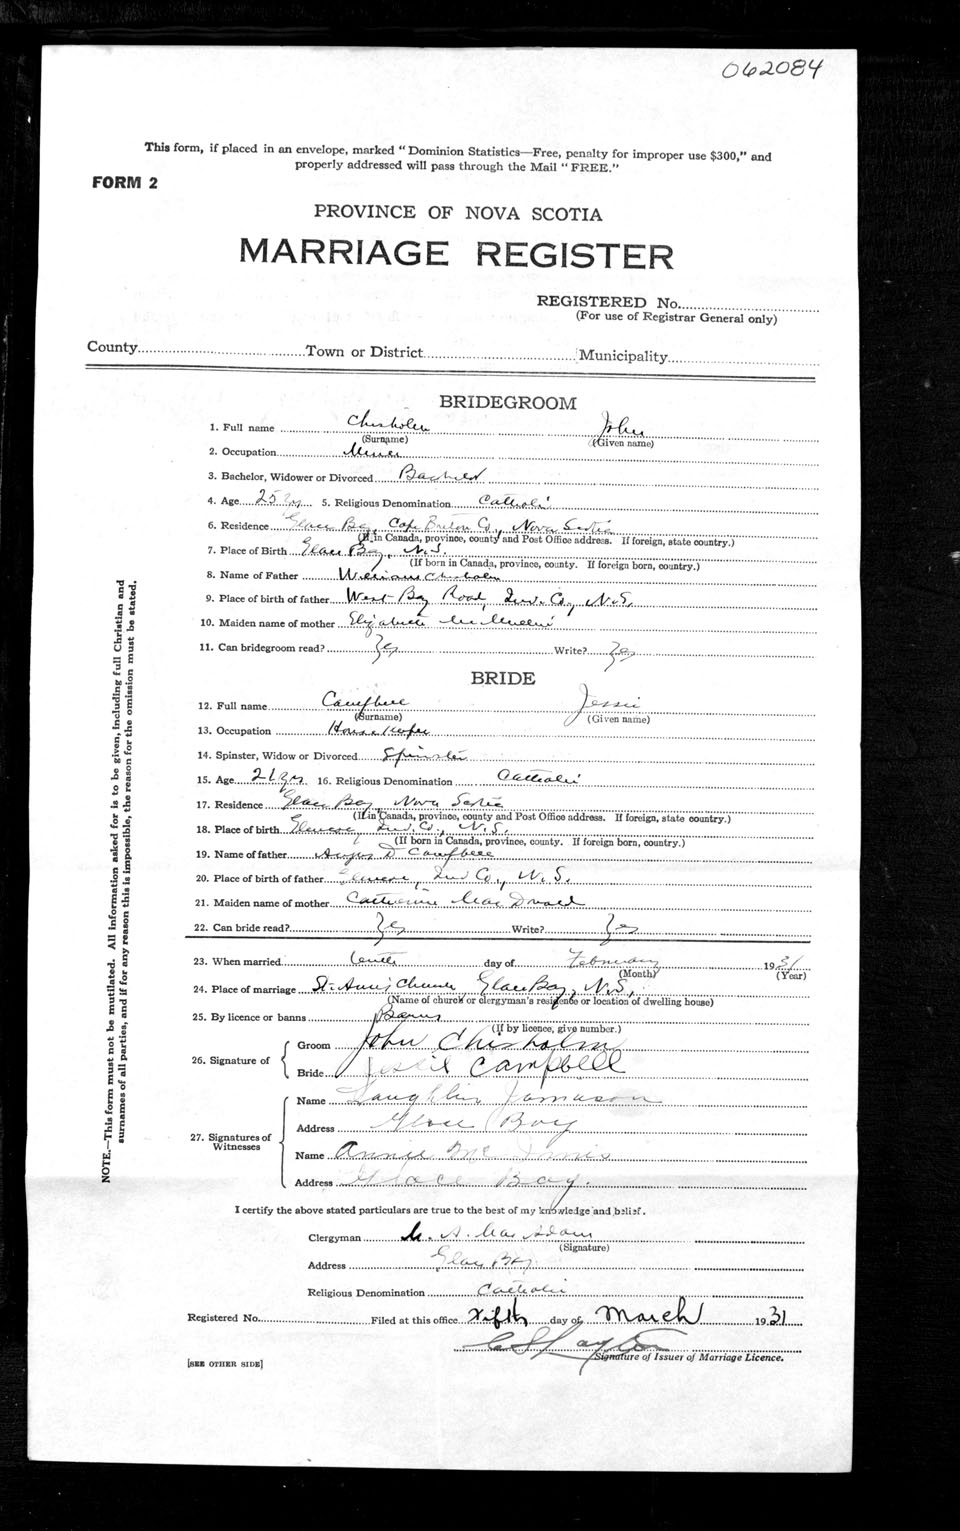 062084
This form, if placed in an envelope, marked "Dominion Statistics—Free, penalty for improper use $300," and
properly addressed will pass through the Mail "FREE."
FORM 2
PROVINCE OF NOVA SCOTIA
MARRIAGE REGISTER
REGISTERED No.
(For use of Registrar General only)
County Town or District Municipality
BRIDEGROOM
1. Full name Chisholm John
(Surname) (Given name)
2. Occupation Miner
3. Bachelor, Widower or Divorced Bachelor
4. Age 25 yrs 5. Religious Denomination Catholic
6. Residence Glace Bay, Cape Breton Co., Nova Scotia
(If in Canada, province, county and Post Office address. If foreign, state country.)
7. Place of Birth Glace Bay, N.S.
(If born in Canada, province, county. If foreign born, country.)
8. Name of Father William Chisholm
9. Place of birth of father West Bay Road, Inv. Co., N.S.
10. Maiden name of mother Elizabeth
11. Can bridegroom read? Yes Write? Yes
BRIDE
12. Full name Campbell Jessie
(Surname) (Given name)
13. Occupation Housekeeper
14. Spinster, Widow or Divorced Spinster
15. Age 21 yrs 16. Religious Denomination Catholic
17. Residence Glace Bay, Nova Scotia
(If in Canada, province, county and Post Office address. If foreign, state country.)
18. Place of birth Glencoe, Inv. Co., N.S.
(If born in Canada, province, county. If foreign born, country.)
19. Name of father Angus D Campbell
20. Place of birth of father Glencoe, Inv Co., N.S.
21. Maiden name of mother Catherine MacDonald
22. Can bride read? Yes Write? Yes
23. When married tenth day of February 1931
(Month) (Year)
24. Place of marriage St. Ann's Church Glace Bay, N.S.
(Name of church or clergyman's residence or location of dwelling house)
25. By licence or banns Banns
(If by licence, give number.)
26. Signature of Groom John Chisholm
Bride Jessie Campbell
27. Signatures of Witnesses
Name Laughlin Jamieson
Address Glace Bay
Name Annie Mc Innis
Address Glace Bay.
I certify the above stated particulars are true to the best of my knowledge and belief.
Clergyman M. A. MacAdam
(Signature)
Address Glace Bay
Religious Denomination Catholic
Registered No. Filed at this office Fifth day of March 1931
C S Layton
Signature of Issuer of Marriage Licence.
[SEE OTHER SIDE]
NOTE.—This form must not be mutilated. All information asked for is to be given, including full Christian and
surnames of all parties, and if for any reason this is impossible, the reason for the omission must be stated.